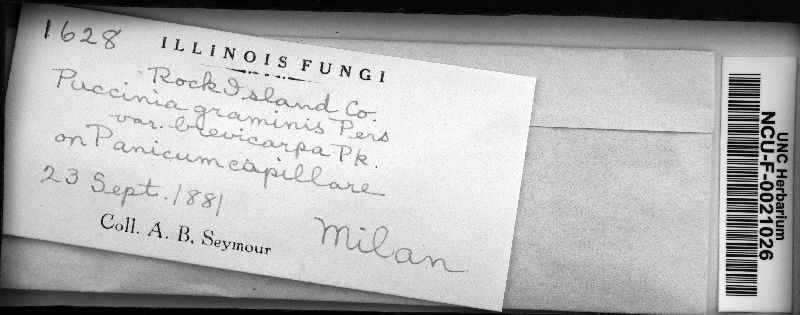 1628
ILLINOIS FUNGI
Rock Island Co.
Puccinia graminis Pers
var. brevicarpa Pk.
on Panicum capillare
23 Sept. 1881
Coll. A. B. Seymour
Milan
UNC Herbarium
NCU-F-0021026